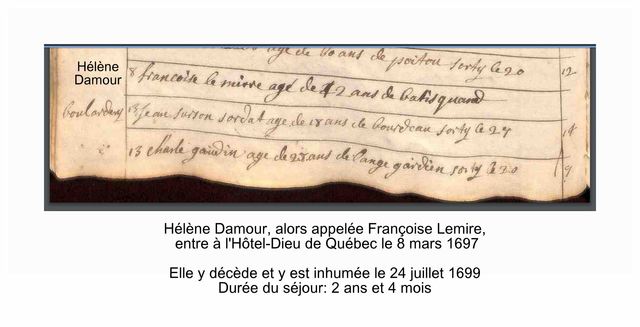 age de 60 ans de poitou sorty le 20 12
Hélène
Damour
8 francoise le mirre agé de 42 ans de batisquand
boulardery 13 Jean surson sordat age de 18 ans de bourdeau sorty le 27 14
13 charle gaudin age de 28 ans de lange gardien sorty le 20 9
Hélène Damour, alors appelée Françoise Lemire,
entre à l'Hôtel-Dieu de Québec le 8 mars 1697
Elle y décède et y est inhumée le 24 juillet 1699
Durée du séjour: 2 ans et 4 mois